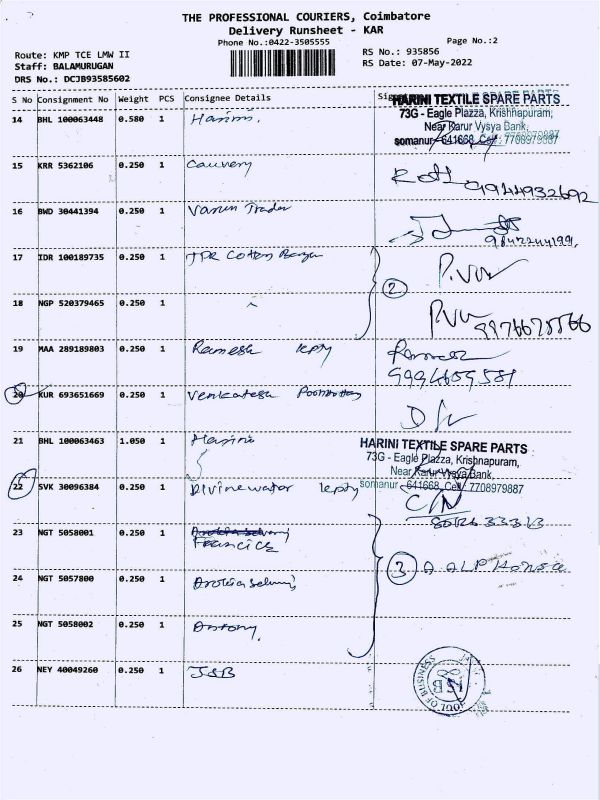 THE PROFESSIONAL COURIERS, Coimbatore
Delivery Runsheet - KAR
Phone No.:0422-3505555
Page No.:2
Route: KMP TCE LMW II
Staff: BALAMURUGAN
DRS No.: DCJB93585602
RS No.: 935856
RS Date: 07-May-2022
S No Consignment No Weight PCS Consignee Details
HARINI TEXTILE SPARE PARTS
73G - Eagle Plazza, Krishnapuram,
Near Karur Vysya Bank,
somanur - 641668, Cell: 7708979887
14 BHL 100063448 0.580 1 Harini.
15 KRR 5362106 0.250 1 Cauvery
16 BWD 30441394 0.250 1 Varun Trader
17 IDR 100189735 0.250 1 JPR Cotton
2
18 NGP 520379465 0.250 1
19 MAA 289189803 0.250 1 Ramesh
9994659581
20 KUR 693651669 0.250 1 Venkatesh
21 BHL 100063463 1.050 1 Harini
HARINI TEXTILE SPARE PARTS
73G - Eagle Plazza, Krishnapuram,
Near Karur Vysya Bank,
somanur - 641668, Cell: 7708979887
22 SVK 30096384 0.250 1 Divine water
23 NGT 5058001 0.250 1 Francis
3
24 NGT 5057800 0.250 1
25 NGT 5058002 0.250 1 Antony.
26 NEY 40049260 0.250 1 JSB